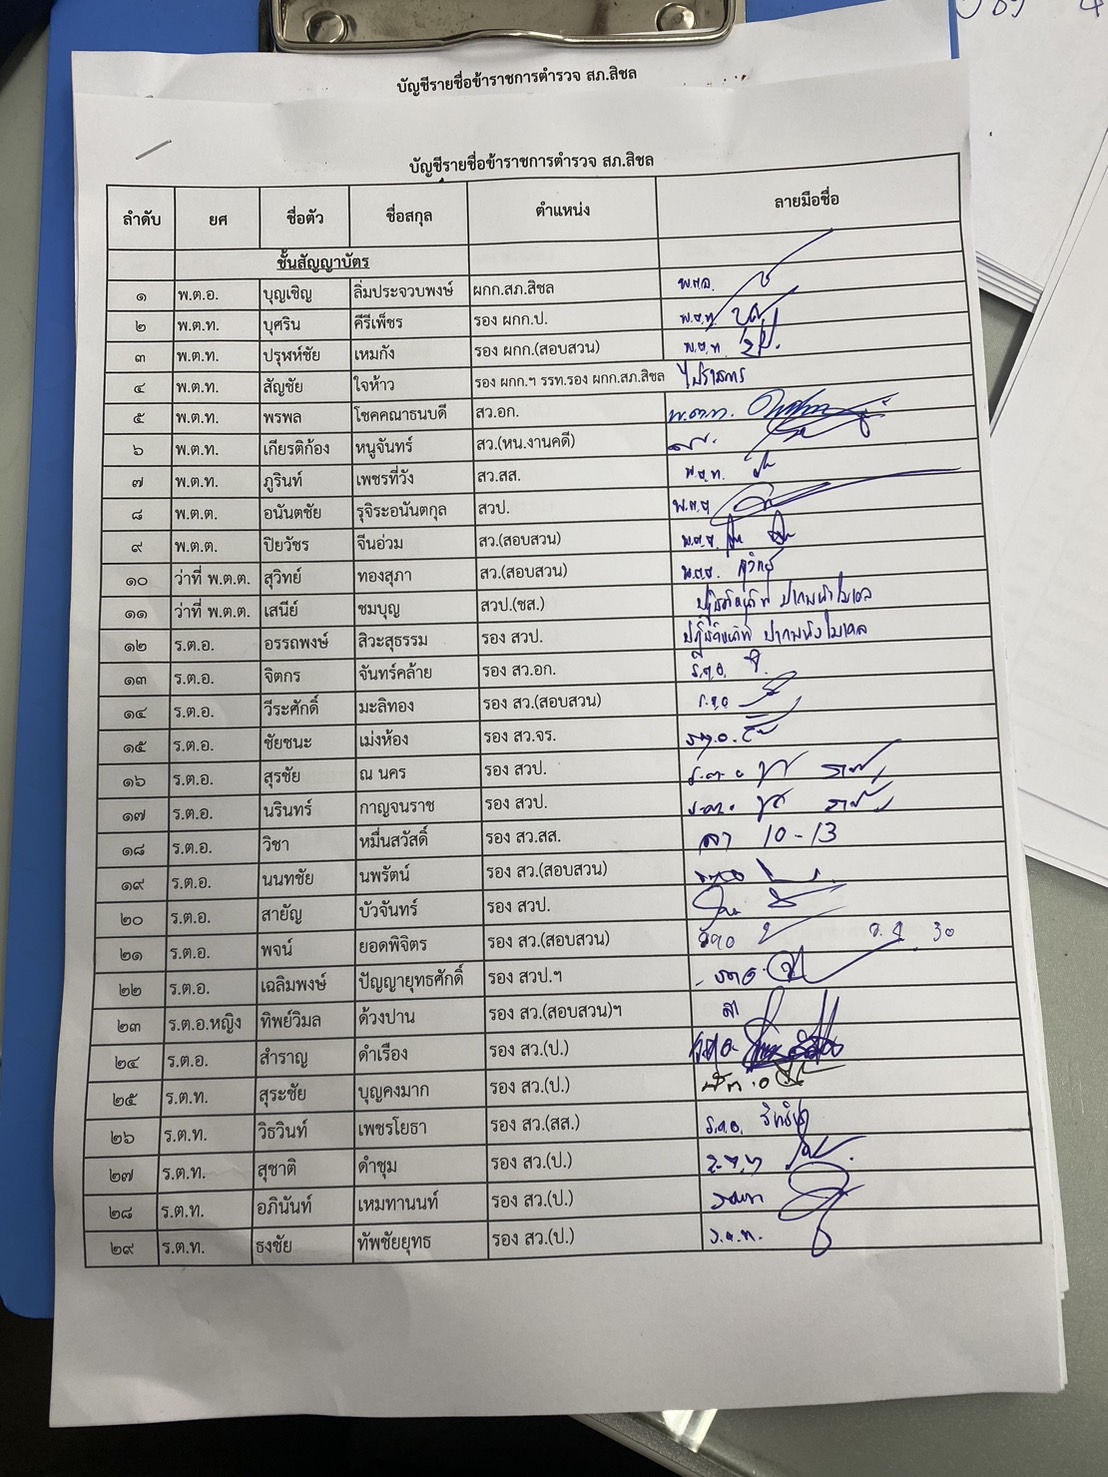 บัญชีรายชื่อข้าราชการตำรวจ สภ.สิชล
บัญชีรายชื่อข้าราชการตำรวจ สภ.สิชล
ลำดับ ยศ ชื่อตัว ชื่อสกุล ตำแหน่ง ลายมือชื่อ
ชั้นสัญญาบัตร
๑ พ.ต.อ. บุญเชิญ ลิ่มประจวบพงษ์ ผกก.สภ.สิชล พ.ต.อ.
๒ พ.ต.ท. บุศริน คีรีเพ็ชร รอง ผกก.ป. พ.ต.ท.
๓ พ.ต.ท. ปรุฬห์ชัย เหมกัง รอง ผกก.(สอบสวน) พ.ต.ท.
๔ พ.ต.ท. สัญชัย ใจห้าว รอง ผกก.ฯ รรท.รอง ผกก.สภ.สิชล ไปราชการ
๕ พ.ต.ท. พรพล โชคคณาธนบดี สว.อก. พ.ต.ท.
๖ พ.ต.ท. เกียรติก้อง หนูจันทร์ สว.(หน.งานคดี)
๗ พ.ต.ท. ภูรินท์ เพชรที่วัง สว.สส. พ.ต.ท.
๘ พ.ต.ต. อนันตชัย รุจิระอนันตกุล สวป. พ.ต.ต.
๙ พ.ต.ต. ปิยวัชร จีนอ่วม สว.(สอบสวน) พ.ต.ต.
๑๐ ว่าที่ พ.ต.ต. สุวิทย์ ทองสุภา สว.(สอบสวน) พ.ต.ต. สุวิทย์
๑๑ ว่าที่ พ.ต.ต. เสนีย์ ชมบุญ สวป.(ชส.)
๑๒ ร.ต.อ. อรรถพงษ์ สิวะสุธรรม รอง สวป.
๑๓ ร.ต.อ. จิตกร จันทร์คล้าย รอง สว.อก. ร.ต.อ.
๑๔ ร.ต.อ. วีระศักดิ์ มะลิทอง รอง สว.(สอบสวน) ร.ต.อ
๑๕ ร.ต.อ. ชัยชนะ เม่งห้อง รอง สว.จร. ร.ต.อ.
๑๖ ร.ต.อ. สุรชัย ณ นคร รอง สวป.
๑๗ ร.ต.อ. นรินทร์ กาญจนราช รอง สวป.
๑๘ ร.ต.อ. วิชา หมื่นสวัสดิ์ รอง สว.สส. ลา 10-13
๑๙ ร.ต.อ. นนทชัย นพรัตน์ รอง สว.(สอบสวน)
๒๐ ร.ต.อ. สายัญ บัวจันทร์ รอง สวป.
๒๑ ร.ต.อ. พจน์ ยอดพิจิตร รอง สว.(สอบสวน)
๒๒ ร.ต.อ. เฉลิมพงษ์ ปัญญายุทธศักดิ์ รอง สวป.ฯ
๒๓ ร.ต.อ.หญิง ทิพย์วิมล ด้วงปาน รอง สว.(สอบสวน)ฯ ลา
๒๔ ร.ต.อ. สำราญ ดำเรือง รอง สว.(ป.)
๒๕ ร.ต.ท. สุระชัย บุญคงมาก รอง สว.(ป.)
๒๖ ร.ต.ท. วิธวินท์ เพชรโยธา รอง สว.(สส.)
๒๗ ร.ต.ท. สุชาติ ดำชุม รอง สว.(ป.)
๒๘ ร.ต.ท. อภินันท์ เหมทานนท์ รอง สว.(ป.)
๒๙ ร.ต.ท. ธงชัย ทัพชัยยุทธ รอง สว.(ป.) ร.ต.ท.